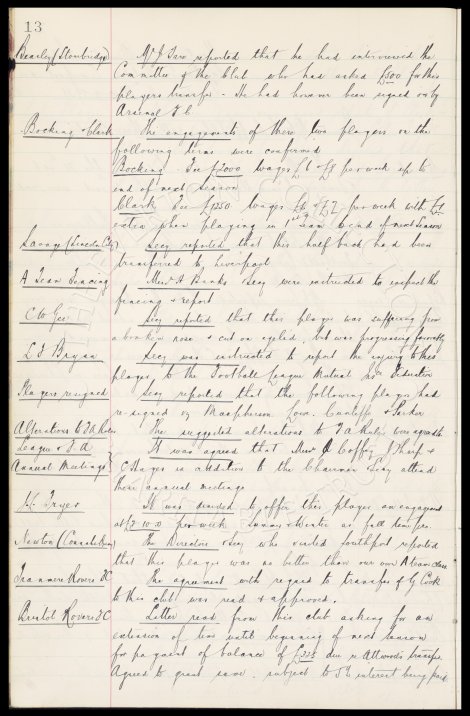 13
Beasley (Stourbridge) Mr J Sare reported that he had interviewed the
Committee of the Club who had asked £300 for this
players transfer. He had however been signed on by
Arsenal F C
Bocking & Clark The engagements of these two players on the
following terms were confirmed
Bocking Fee £2000 wages £6 & £8 per week up to
end of next season
Clark Fee £1350 wages £6 & £7 per week with £1
extra when playing in 1st team to end of next season
Savage (Lincoln City) Secy reported that this half back had been
transferred to Liverpool
A Team Fencing Messrs A Banks Secy were instructed to inspect the
fencing & report
C W Gee Secy reported that this player was suffering from
a broken nose & cut on eyelid, but was progressing favorably
Secy was instructed to report the injury to this
player to the Football League Mutual
Players resigned Secy reported that the following players had
re-signed viz Macpherson Low. Cunliffe & Parker
Alterations to F.A. Rules The suggested alterations to F A Rules were agreed to
League & F.A It was agreed that Messrs Coffey J Sharp &
Annual Meetings C in addition to the Chairman Secy attend
these annual meetings
H. Fryer It was decided to offer this player an engagement
at £7-10-0 per week Summer & Winter as full time pro.
Newton The Directors Secy who visited Southport reported
that this player was no better than our own A team class
Tranmere Rovers FC The agreement with regard to transfer of G Cook
to this club was read & approved.
Bristol Rovers FC Letter read from this club asking for an
extension of time until beginning of next season
for payment of balance of £325 due re Attwoods transfer
Agreed to grant same. subject to 5% interest being paid